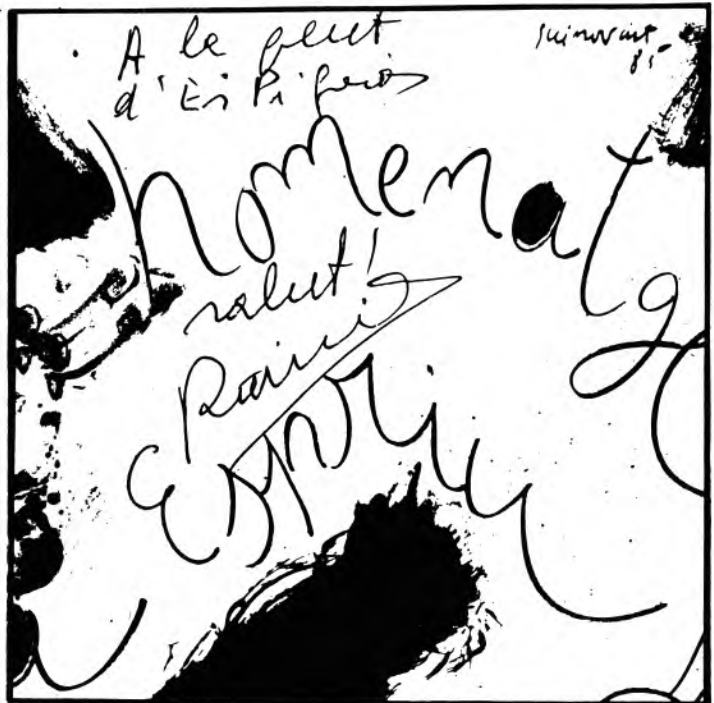 A la gent
d'Es Pi
guinovart
85
homenatge
salut!
Raimon
a Espriu